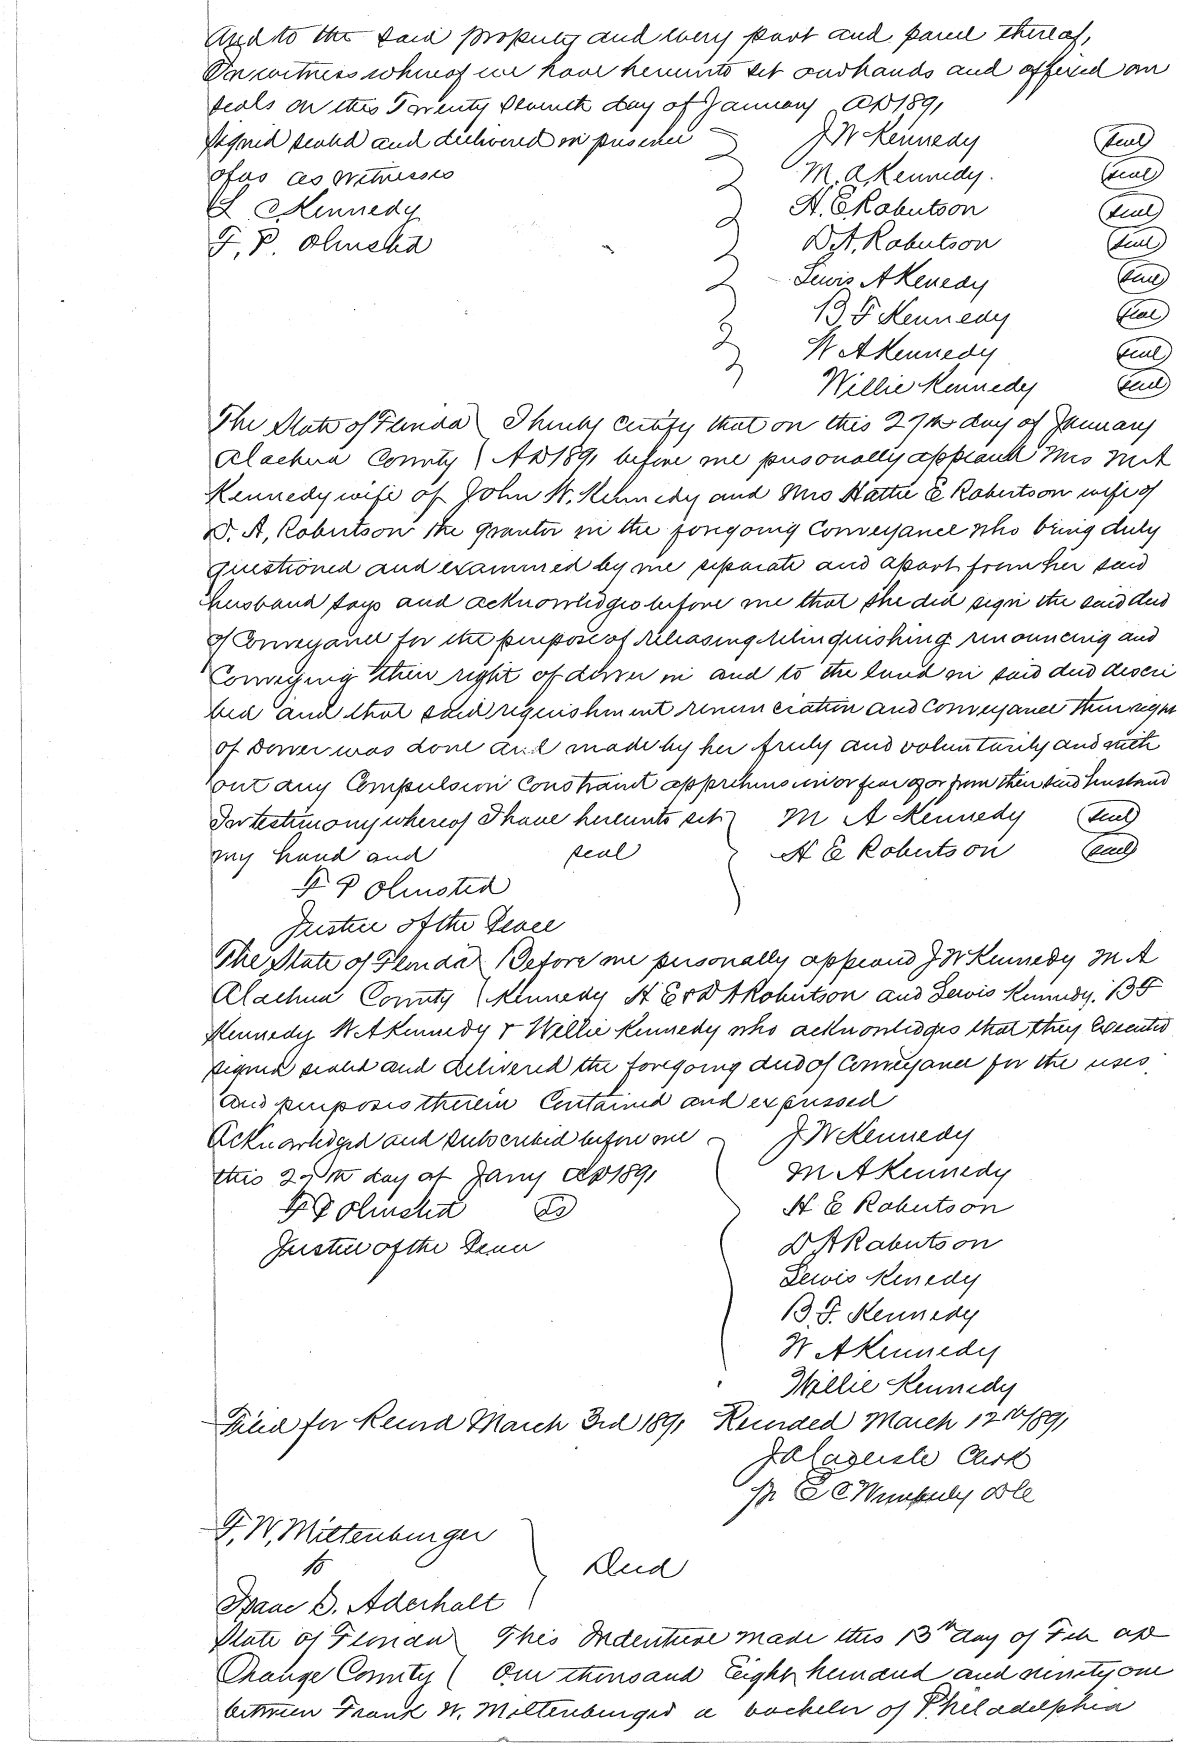 and to the said property and every part and parcel thereof,
In witness whereof we have hereunto set our hands and affixed our
seals on this Twenty Seventh day of January AD 1891
Signed sealed and delivered in presence J W Kennedy seal
of us as witnesses M. A. Kennedy. seal
L C Kennedy H. E. Robertson seal
F. P. Olmsted D. A. Robertson seal
Lewis A Kenedy seal
B F Kennedy seal
W A Kennedy seal
Willie Kennedy seal
The State of Florida I hereby certify that on this 27th day of January
Alachua County AD 1891 before me personally appeard Mrs M A
Kennedy wife of John W. Kennedy and Mrs Hattie E Robertson wife of
D. A, Robertson the grantor in the foregoing Conveyance who being duly
questioned and examined by me separate and apart from her said
husband says and acknowledges before me that she did sign the said deed
of Conveyance for the purpose of releasing relinquishing renouncing and
Conveying their right of dower in and to the land in said deed descri
bed and that said requishment renunciation and Conveyance their right
of Dower was done and made by her freely and voluntarily and with
out any Compulsion Constraint apprehension or fear of or from their said husband
In testimony whereof I have hereunto set M A Kennedy seal
my hand and seal H E Robertson seal
F P Olmsted
Justice of the Peace
The State of Florida Before me personally appeard J W Kennedy M A
Alachua County Kennedy H E & D A Robertson and Lewis Kennedy. B F
Kennedy W A Kennedy & Willie Kennedy who acknowledges that they executed
signed sealed and delivered the foregoing deed of Conveyance for the uses
and purposes therein Contained and expressed
Acknowledged and subscribed before me J W Kennedy
this 27th day of Jany AD 1891 M A Kennedy
F P Olmsted LS H E Robertson
Justice of the Peace D A Robertson
Lewis Kenedy
B. F. Kennedy
W A Kennedy
Willie Kennedy
Filed for Record March 3rd 1891 Recorded March 12th 1891
J A Carlisle Clerk
pr E C Wimberly DC
F. W. Miltenburger
to Deed
Isaac D. Aderholt
State of Florida This Indenture made this 13th day of Feb AD
Orange County One thousand Eight hundred and ninety one
between Frank W. Miltenburger a bachelor of Philadelphia